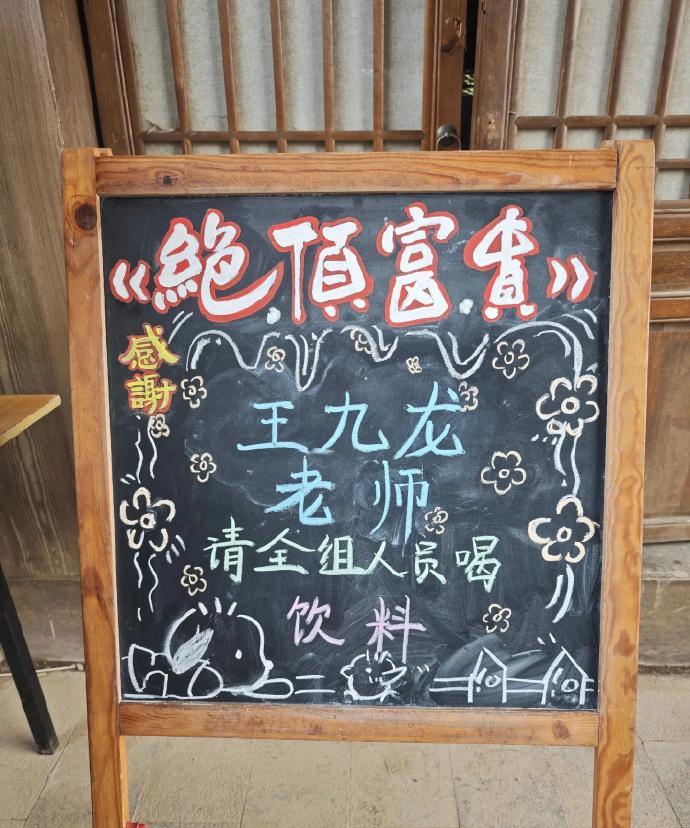 《絶頂富貴》
感謝
王九龙
老师
请全组人员喝
饮料